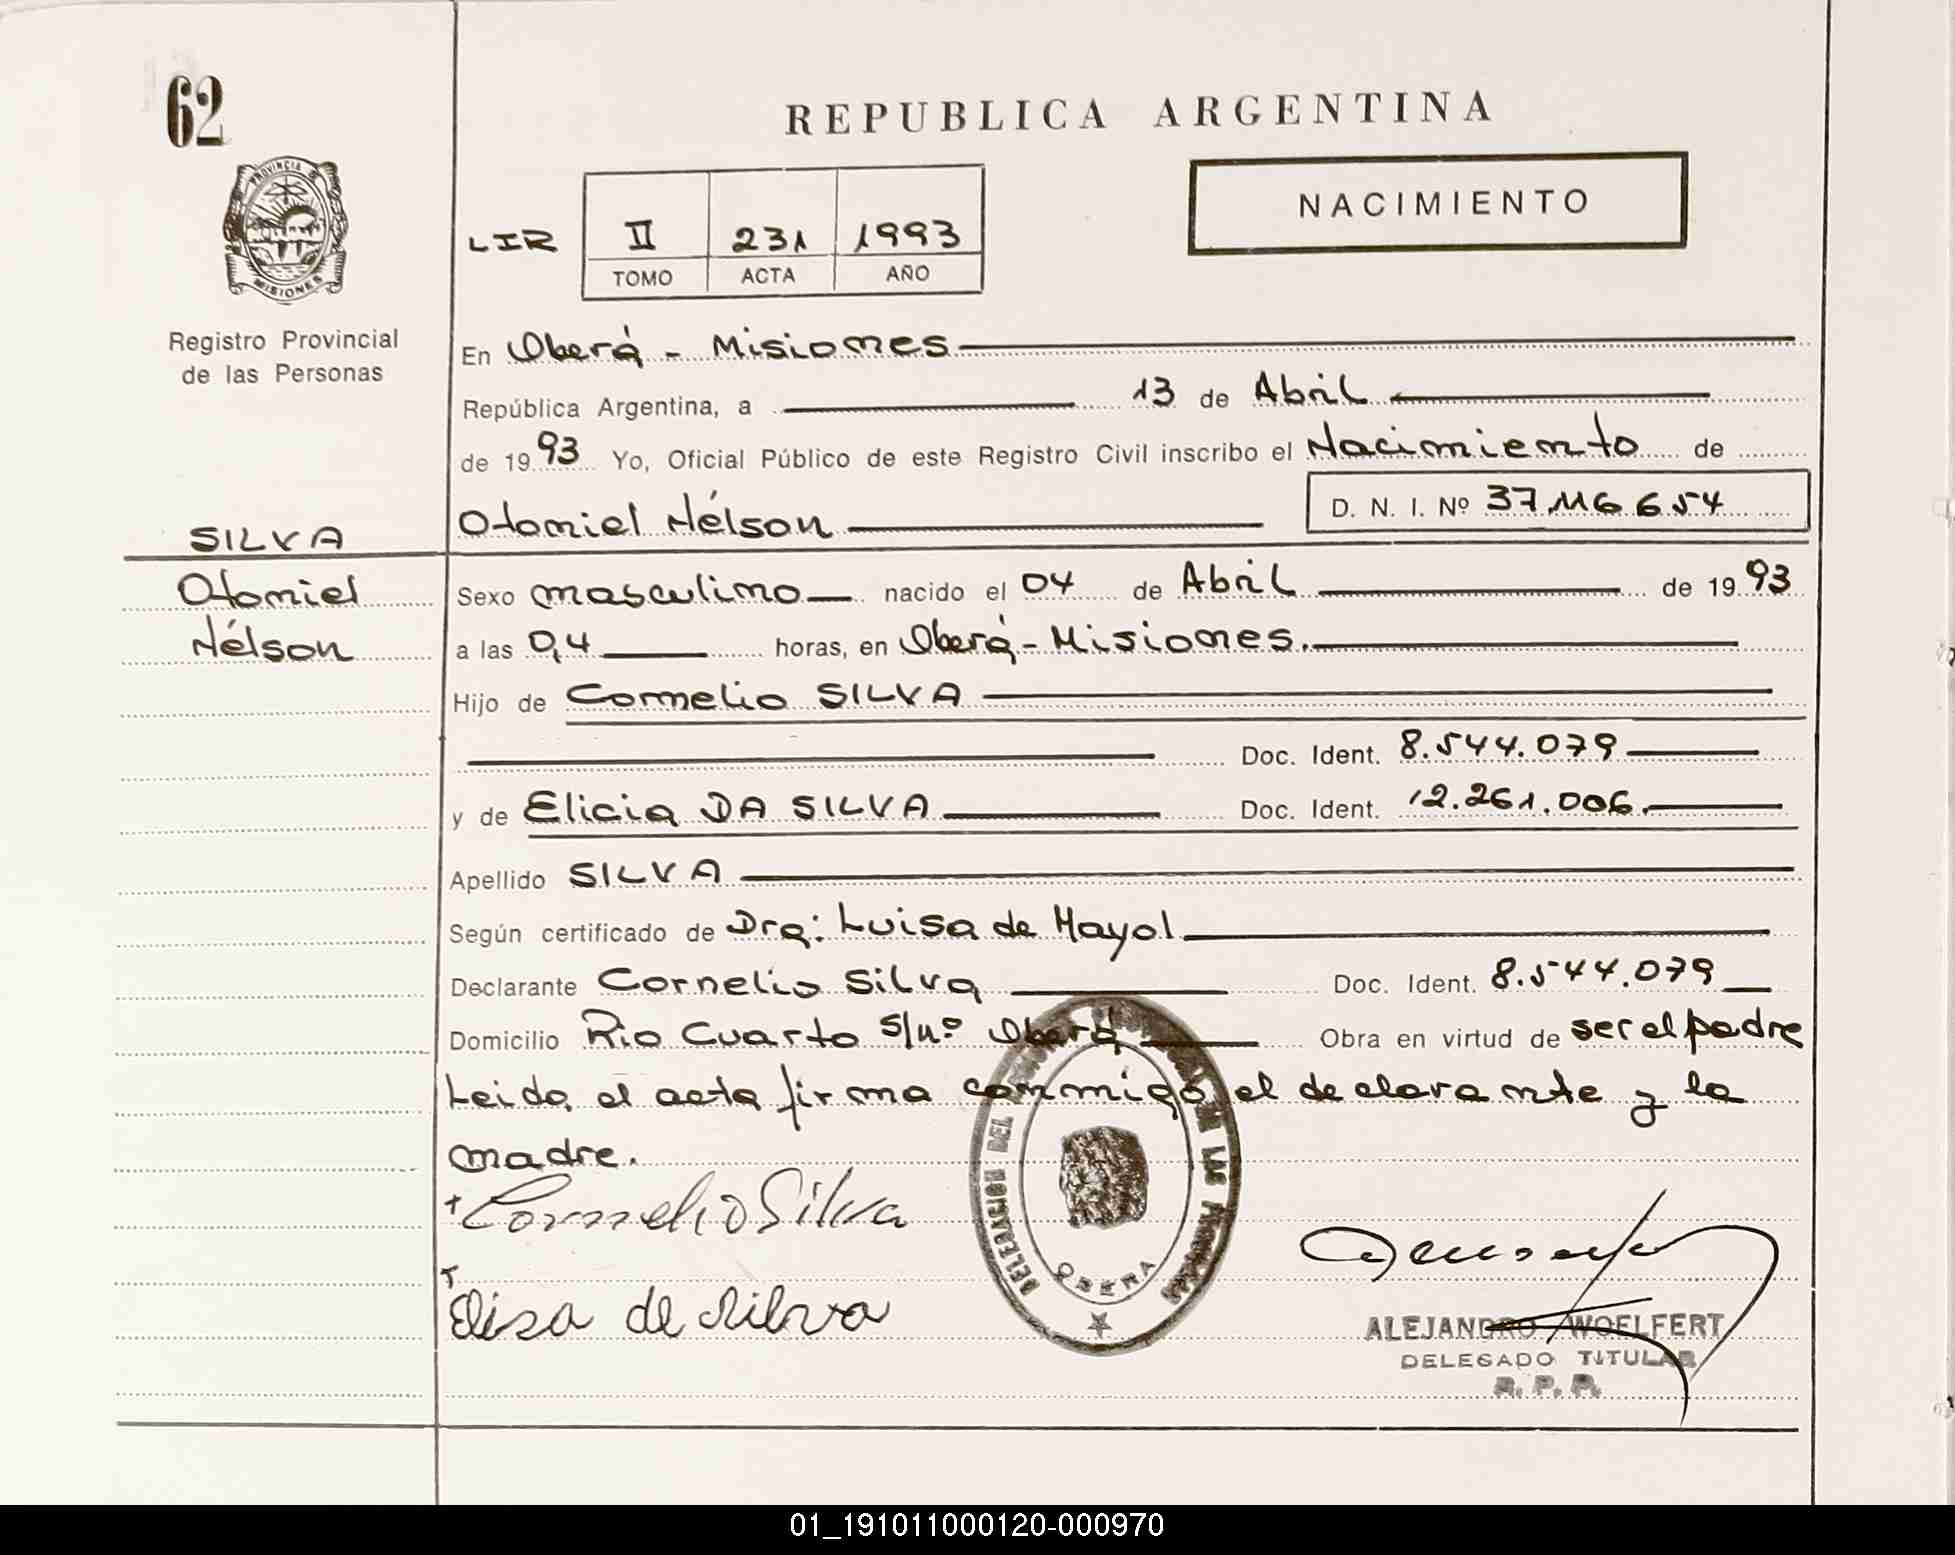 62
REPUBLICA ARGENTINA
PROVINCIA DE
MISIONES
Registro Provincial
de las Personas
LIR II 231 1993
TOMO ACTA AÑO
NACIMIENTO
En Oberá - Misiones
República Argentina, a 13 de Abril
de 1993 Yo, Oficial Público de este Registro Civil inscribo el Nacimiento de
Otoniel Nélson D. N. I. Nº 37.116.654
SILVA
Otoniel
Nélson
Sexo masculino nacido el 04 de Abril de 1993
a las 0,4 horas, en Oberá - Misiones.
Hijo de Cornelio SILVA
Doc. Ident. 8.544.079
y de Elicia DA SILVA Doc. Ident. 12.261.006.
Apellido SILVA
Según certificado de Dra: Luisa de Mayol
Declarante Cornelio Silva Doc. Ident. 8.544.079
Domicilio Rio Cuarto S/nº Oberá Obra en virtud de ser el padre
Leida el acta firma conmigo el declarante y la
madre.
Cornelio Silva
Elisa de Silva
DELEGACION DEL LAS PERSONAS
OBERA
ALEJANDRO WOELFERT
DELEGADO TITULAR
R. P. P.
01_191011000120-000970